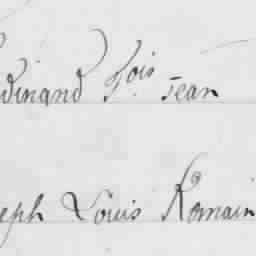 dinand f.ois Jean
eph Louis Romain